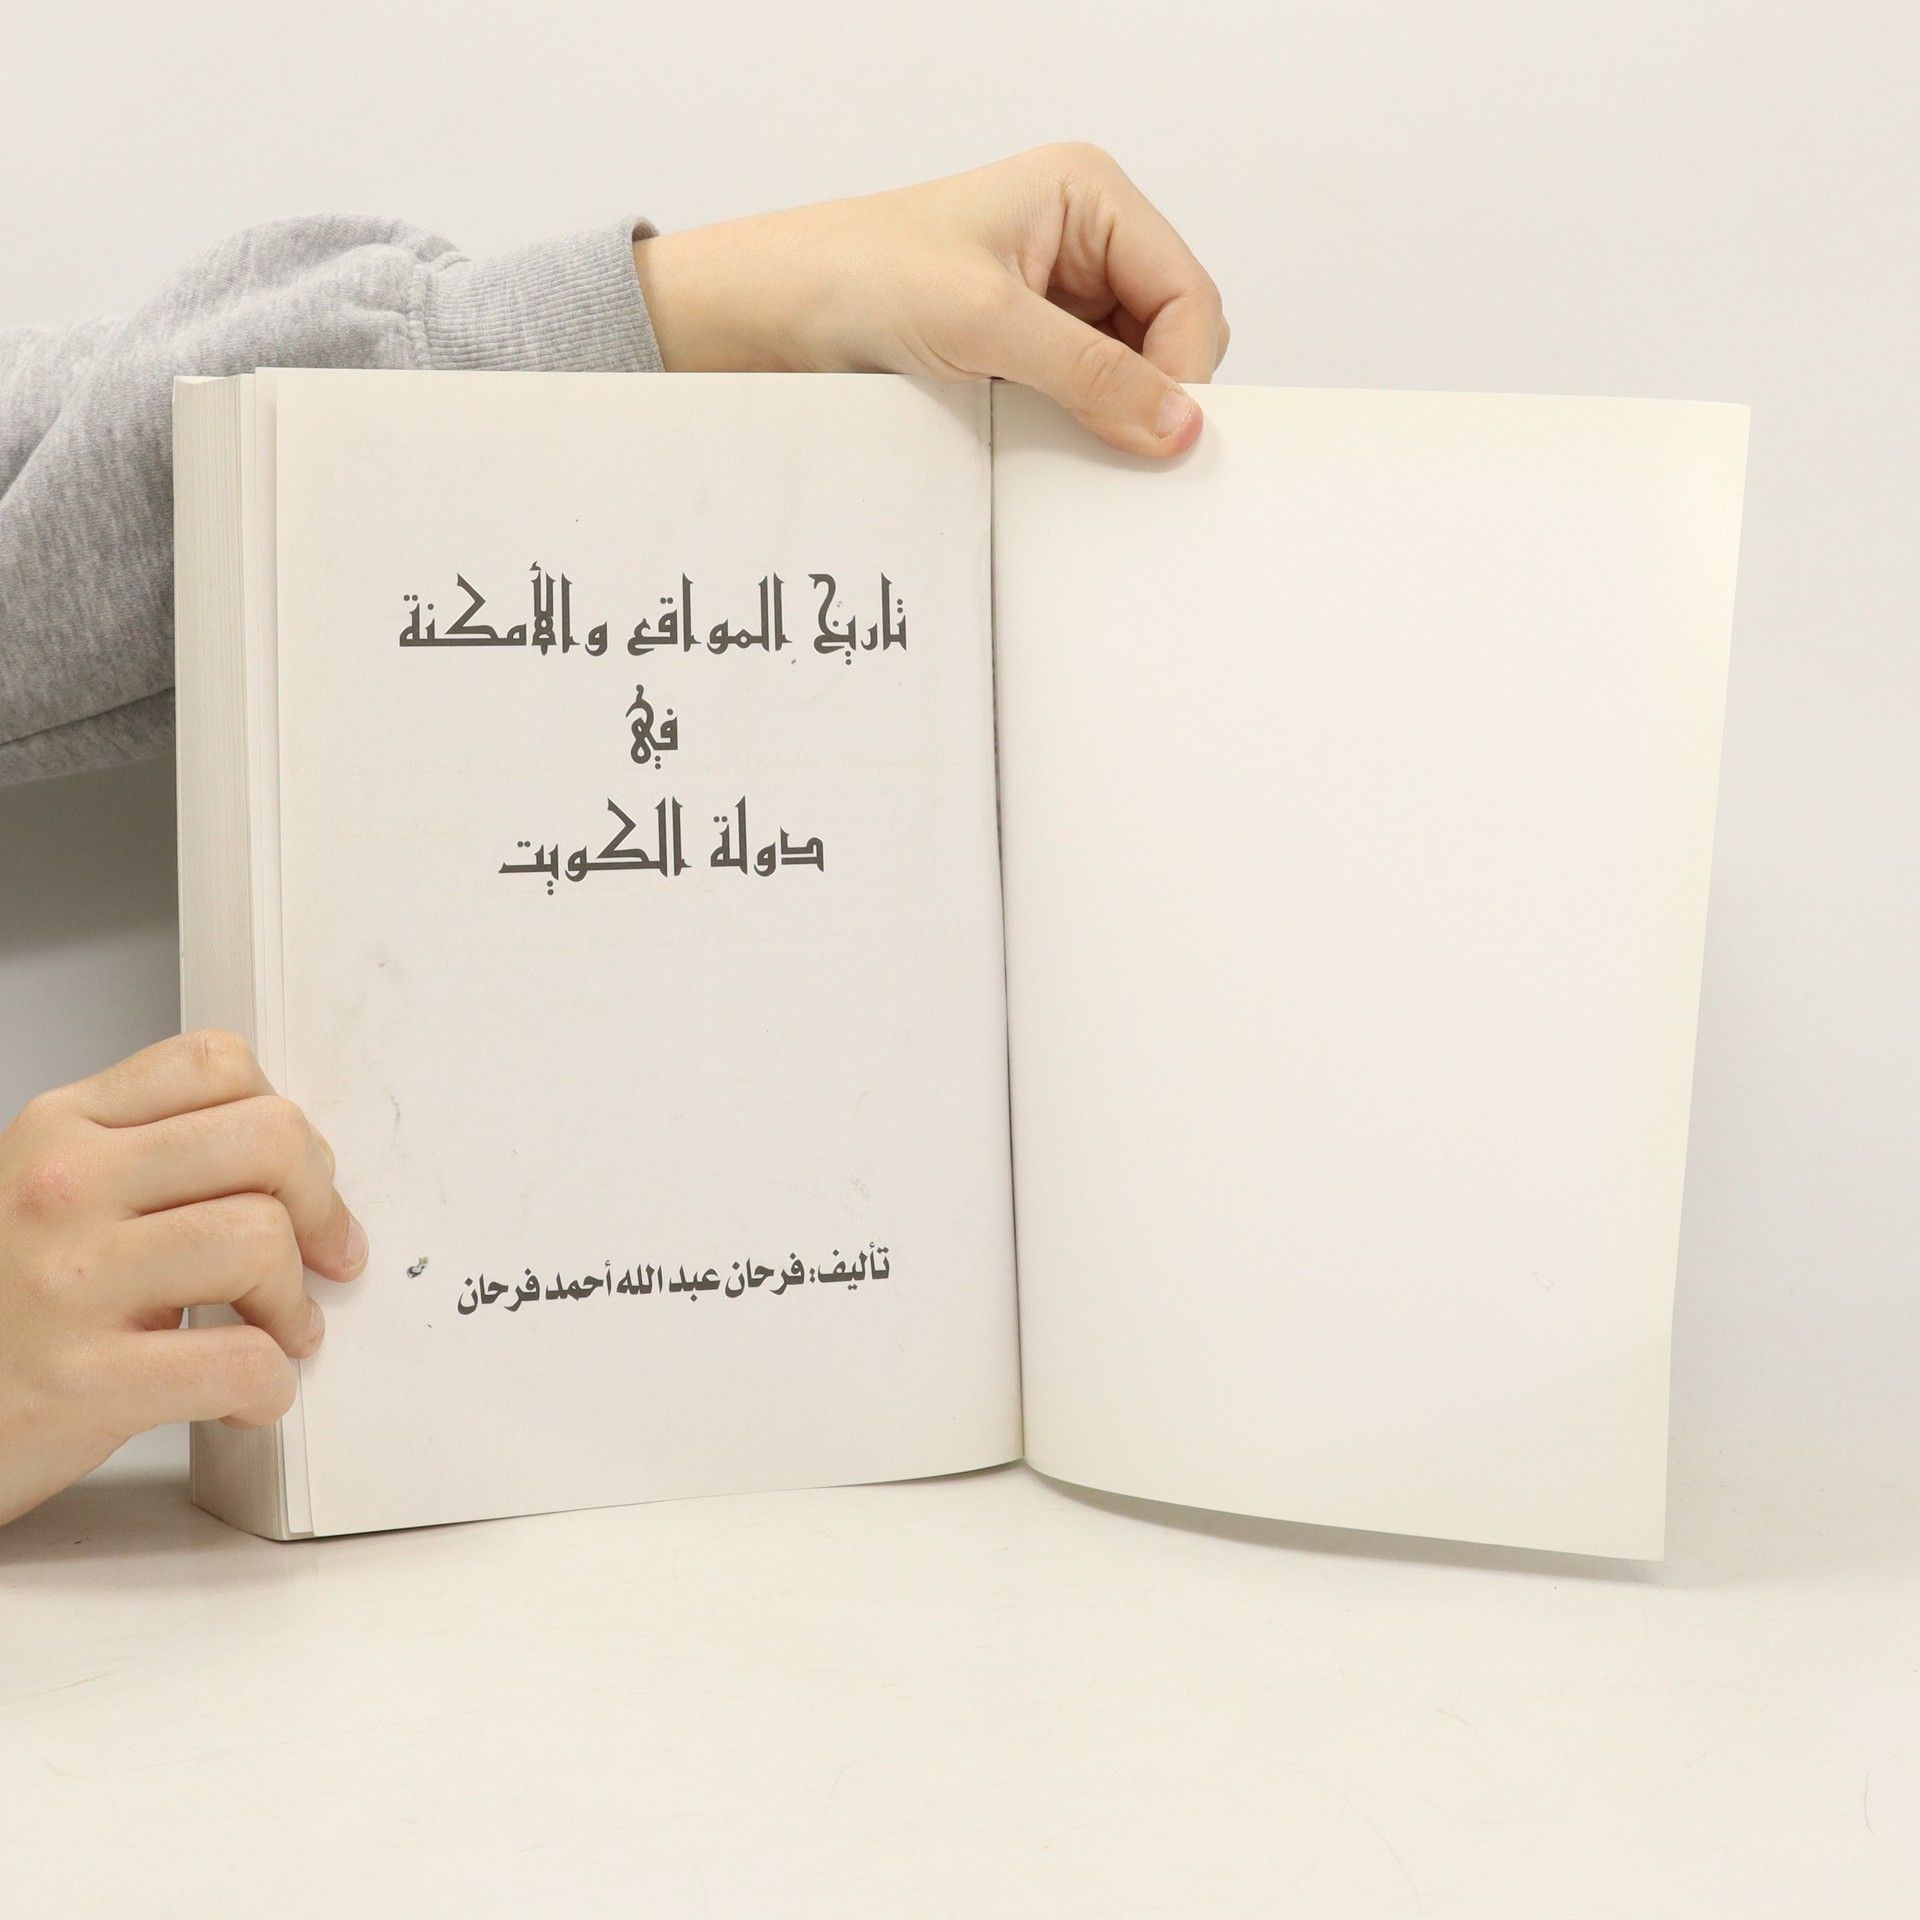 تاريخ المواقع والأمكنة
في
دولة الكويت
تأليف: فرحان عبد الله أحمد فرحان